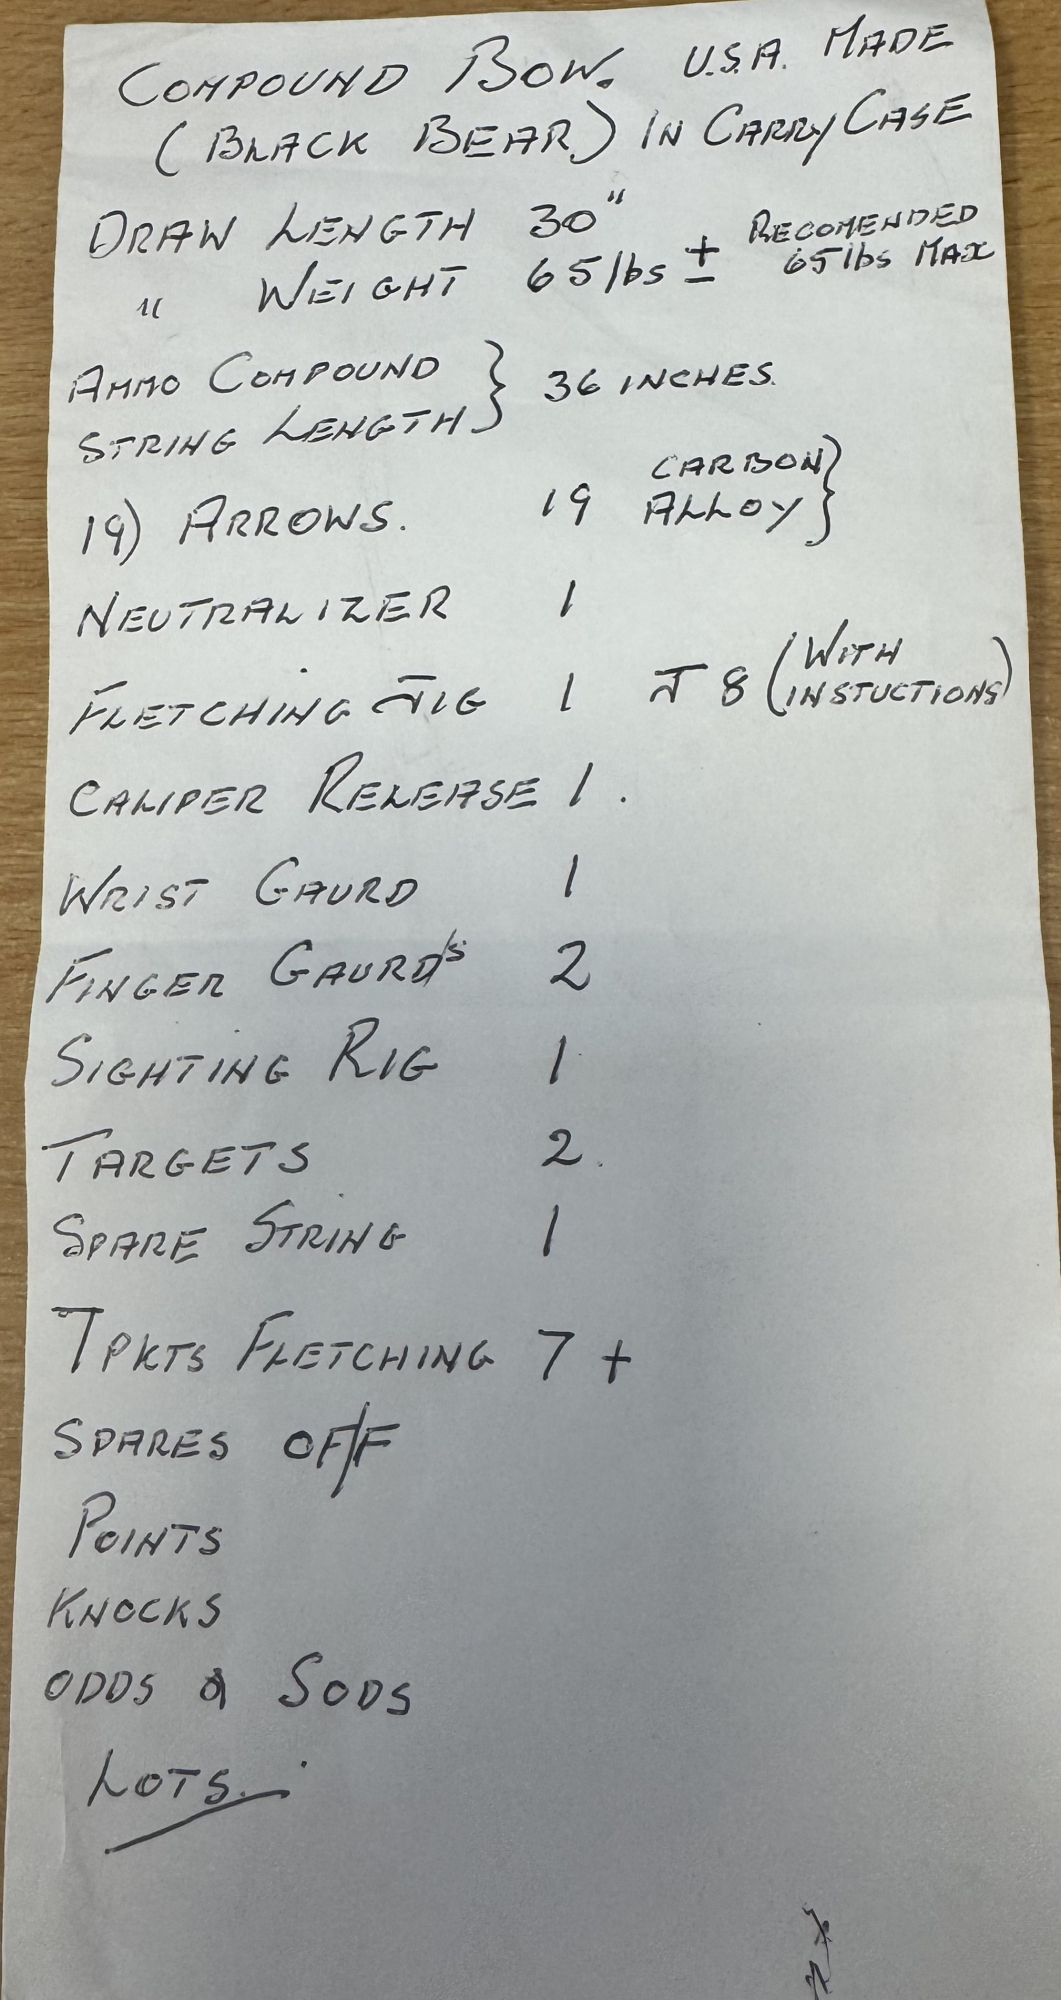 COMPOUND BOW. U.S.A. MADE
(BLACK BEAR) IN CARRY CASE
DRAW LENGTH 30"
" WEIGHT 65 lbs ± RECOMENDED 65 lbs MAX
AMMO COMPOUND
STRING LENGTH } 36 INCHES.
19) ARROWS. 19 CARBON ALLOY }
NEUTRALIZER 1
FLETCHING JIG 1 J 8 (WITH INSTUCTIONS)
CALIPER RELEASE 1.
WRIST GAURD 1
FINGER GAURD'S 2
SIGHTING RIG 1
TARGETS 2.
SPARE STRING 1
7 PKTS FLETCHING 7 +
SPARES OFF
POINTS
KNOCKS
ODDS & SODS
LOTS.